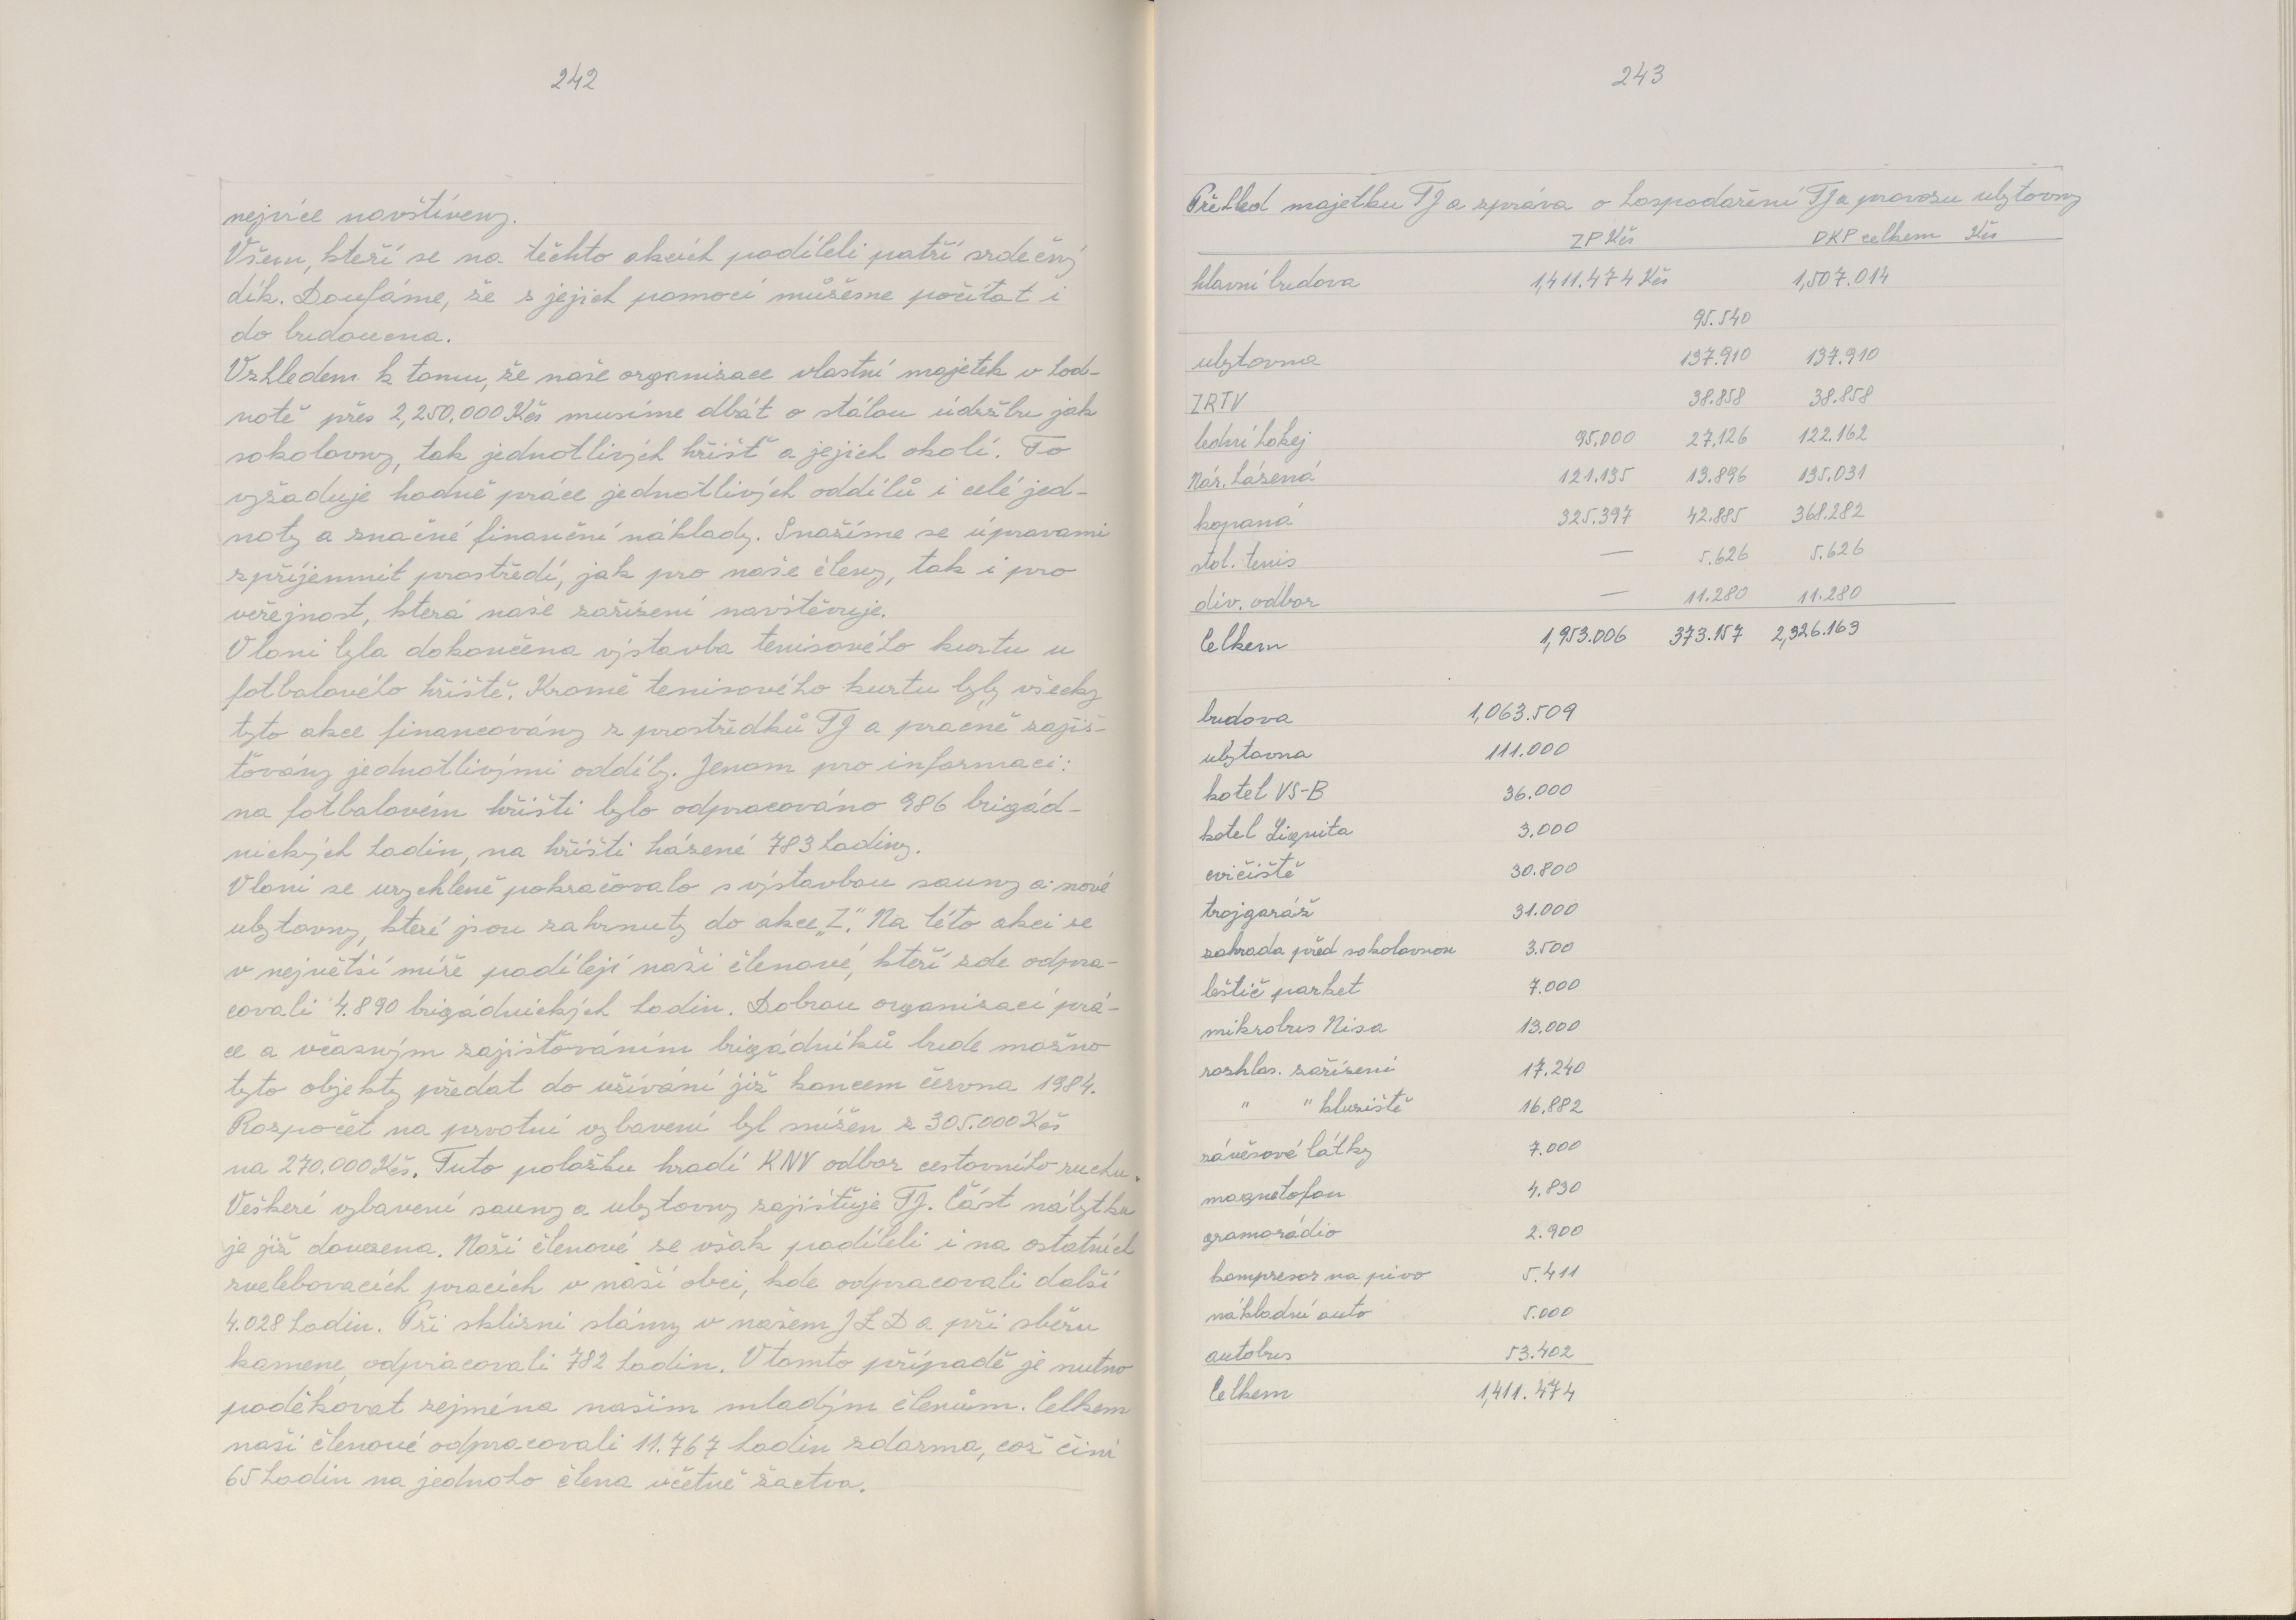 242
nejvíce navštíveny.
Všem, kteří se na těchto akcích podíleli patří srdečný
dík. Doufáme, že s jejich pomocí můžeme počítat i
do budoucna.
Vzhledem k tomu, že naše organizace vlastní majetek v hod-
notě přes 2,250.000 Kčs musíme dbát o stálou údržbu jak
sokolovny, tak jednotlivých hřišť a jejich okolí. To
vyžaduje hodně práce jednotlivých oddílů i celé jed-
noty a značné finanční náklady. Snažíme se úpravami
zpříjemnit prostředí, jak pro naše členy, tak i pro
veřejnost, která naše zařízení navštěvuje.
Vloni byla dokončena výstavba tenisového kurtu u
fotbalového hřiště. Kromě tenisového kurtu byly všecky
tyto akce financovány z prostředků TJ a pracně zajiš-
ťovány jednotlivými oddíly. Jenom pro informaci:
na fotbalovém hřišti bylo odpracováno 986 brigád-
nických hodin, na hřišti házené 783 hodiny.
Vloni se urychleně pokračovalo s výstavbou sauny a nové
ubytovny, které jsou zahrnuty do akce „Z". Na této akci se
v největší míře podílejí naši členové, kteří zde odpra-
covali 4.890 brigádnických hodin. Dobrou organizací prá-
ce a včasným zajišťováním brigádníků bude možno
tyto objekty předat do užívání již koncem června 1984.
Rozpočet na prvotní vybavení byl snížen z 305.000 Kčs
na 270.000 Kčs. Tuto položku hradí KNV odbor cestovního ruchu.
Veškeré vybavení sauny a ubytovny zajišťuje TJ. Část nábytku
je již dovezena. Naši členové se však podíleli i na ostatních
zvelebovacích pracích v naší obci, kde odpracovali další
4.028 hodin. Při sklizni slámy v našem JZD a při sběru
kamene, odpracovali 782 hodin. V tomto případě je nutno
poděkovat zejména našim mladým členům. Celkem
naši členové odpracovali 11.767 hodin zdarma, což činí
65 hodin na jednoho člena včetně žactva.
243
Přehled majetku TJ a zpráva o hospodaření TJ a provozu ubytovny
ZP Kčs DKP celkem Kčs
hlavní budova 1,411.474 Kčs 1,507.014
95.540
ubytovna 137.910 137.910
ZRTV 38.858 38.858
lední hokej 95.000 27.126 122.162
Nár. házená 121.135 13.896 135.031
kopaná 325.397 42.885 368.282
stol. tenis — 5.626 5.626
div. odbor — 11.280 11.280
Celkem 1,953.006 373.157 2,326.163
budova 1,063.509
ubytovna 111.000
kotel VS-B 36.000
kotel Lignita 3.000
cvičiště 30.800
trojgaráž 31.000
zahrada před sokolovnou 3.500
leštič parket 7.000
mikrobus Nisa 13.000
rozhlas. zařízení 17.240
" " kluziště 16.882
závěsové látky 7.000
magnetofon 4.830
gramorádio 2.900
kompresor na pivo 5.411
nákladní auto 5.000
autobus 53.402
Celkem 1,411.474